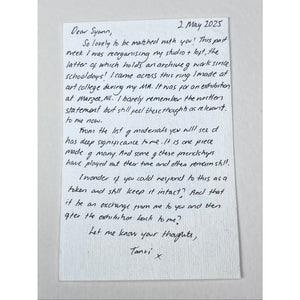 2 May 2025
Dear Syann,
So lovely to be matched with you! This past
week I was reorganising my studio + loft, the
latter of which holds an archive of work since
schooldays! I came across this ring I made at
art college during my MA. It was for an exhibition
at Marzee, NL. I barely remember the written
statement but still feel these thoughts as relevant
to me now.
From the list of materials you will see it
has deep significance to me. It is one piece
made of many. And some of those friendships
have played out their time and others remain still.
I wonder if you could respond to this as a
token and still keep it intact? And that
it be an exchange from me to you and then
after the exhibition back to me?
Let me know your thoughts,
x